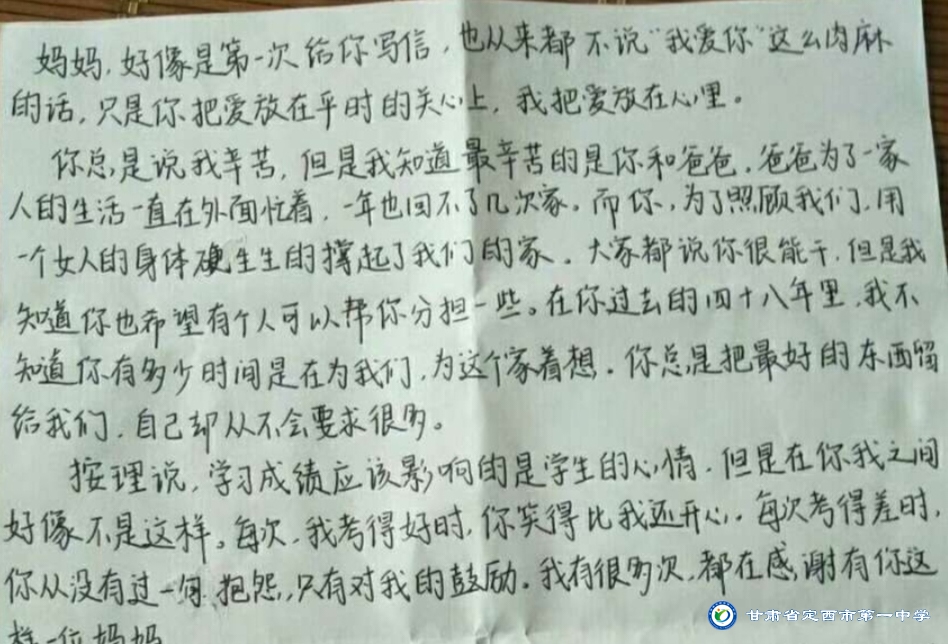 妈妈,好像是第一次给你写信,也从来都不说“我爱你”这么肉麻
的话,只是你把爱放在平时的关心上,我把爱放在心里。
你总是说我辛苦,但是我知道最辛苦的是你和爸爸,爸爸为了一家
人的生活一直在外面忙着,一年也回不了几次家。而你,为了照顾我们,用
一个女人的身体硬生生的撑起了我们的家。大家都说你很能干,但是我
知道你也希望有个人可以帮你分担一些。在你过去的四十八年里,我不
知道你有多少时间是在为我们,为这个家着想。你总是把最好的东西留
给我们,自己却从不会要求很多。
按理说,学习成绩应该影响的是学生的心情,但是在你我之间
好像不是这样。每次,我考得好时,你笑得比我还开心。每次考得差时,
你从没有过一句抱怨,只有对我的鼓励。我有很多次,都在感谢有你这
样一位妈妈
甘肃省定西市第一中学